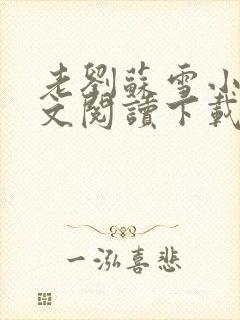 老劉蘇雪小
文閱讀下載
一泓喜悲